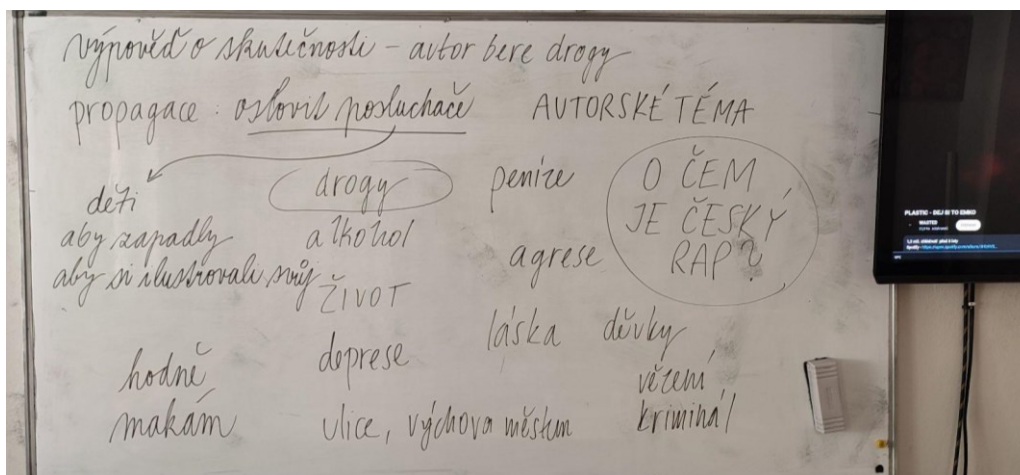 výpověď o skutečnosti – autor bere drogy
propagace: oslovit posluchače AUTORSKÉ TÉMA
děti
aby zapadly
aby si ilustrovali svůj
ŽIVOT
drogy
alkohol
peníze
agrese
O ČEM
JE ČESKÝ
RAP?
deprese
láska děvky
hodně
makám
ulice, výchova městem
vězení,
kriminál
PLASTIC - DEJ SI TO EMKO
WASTED